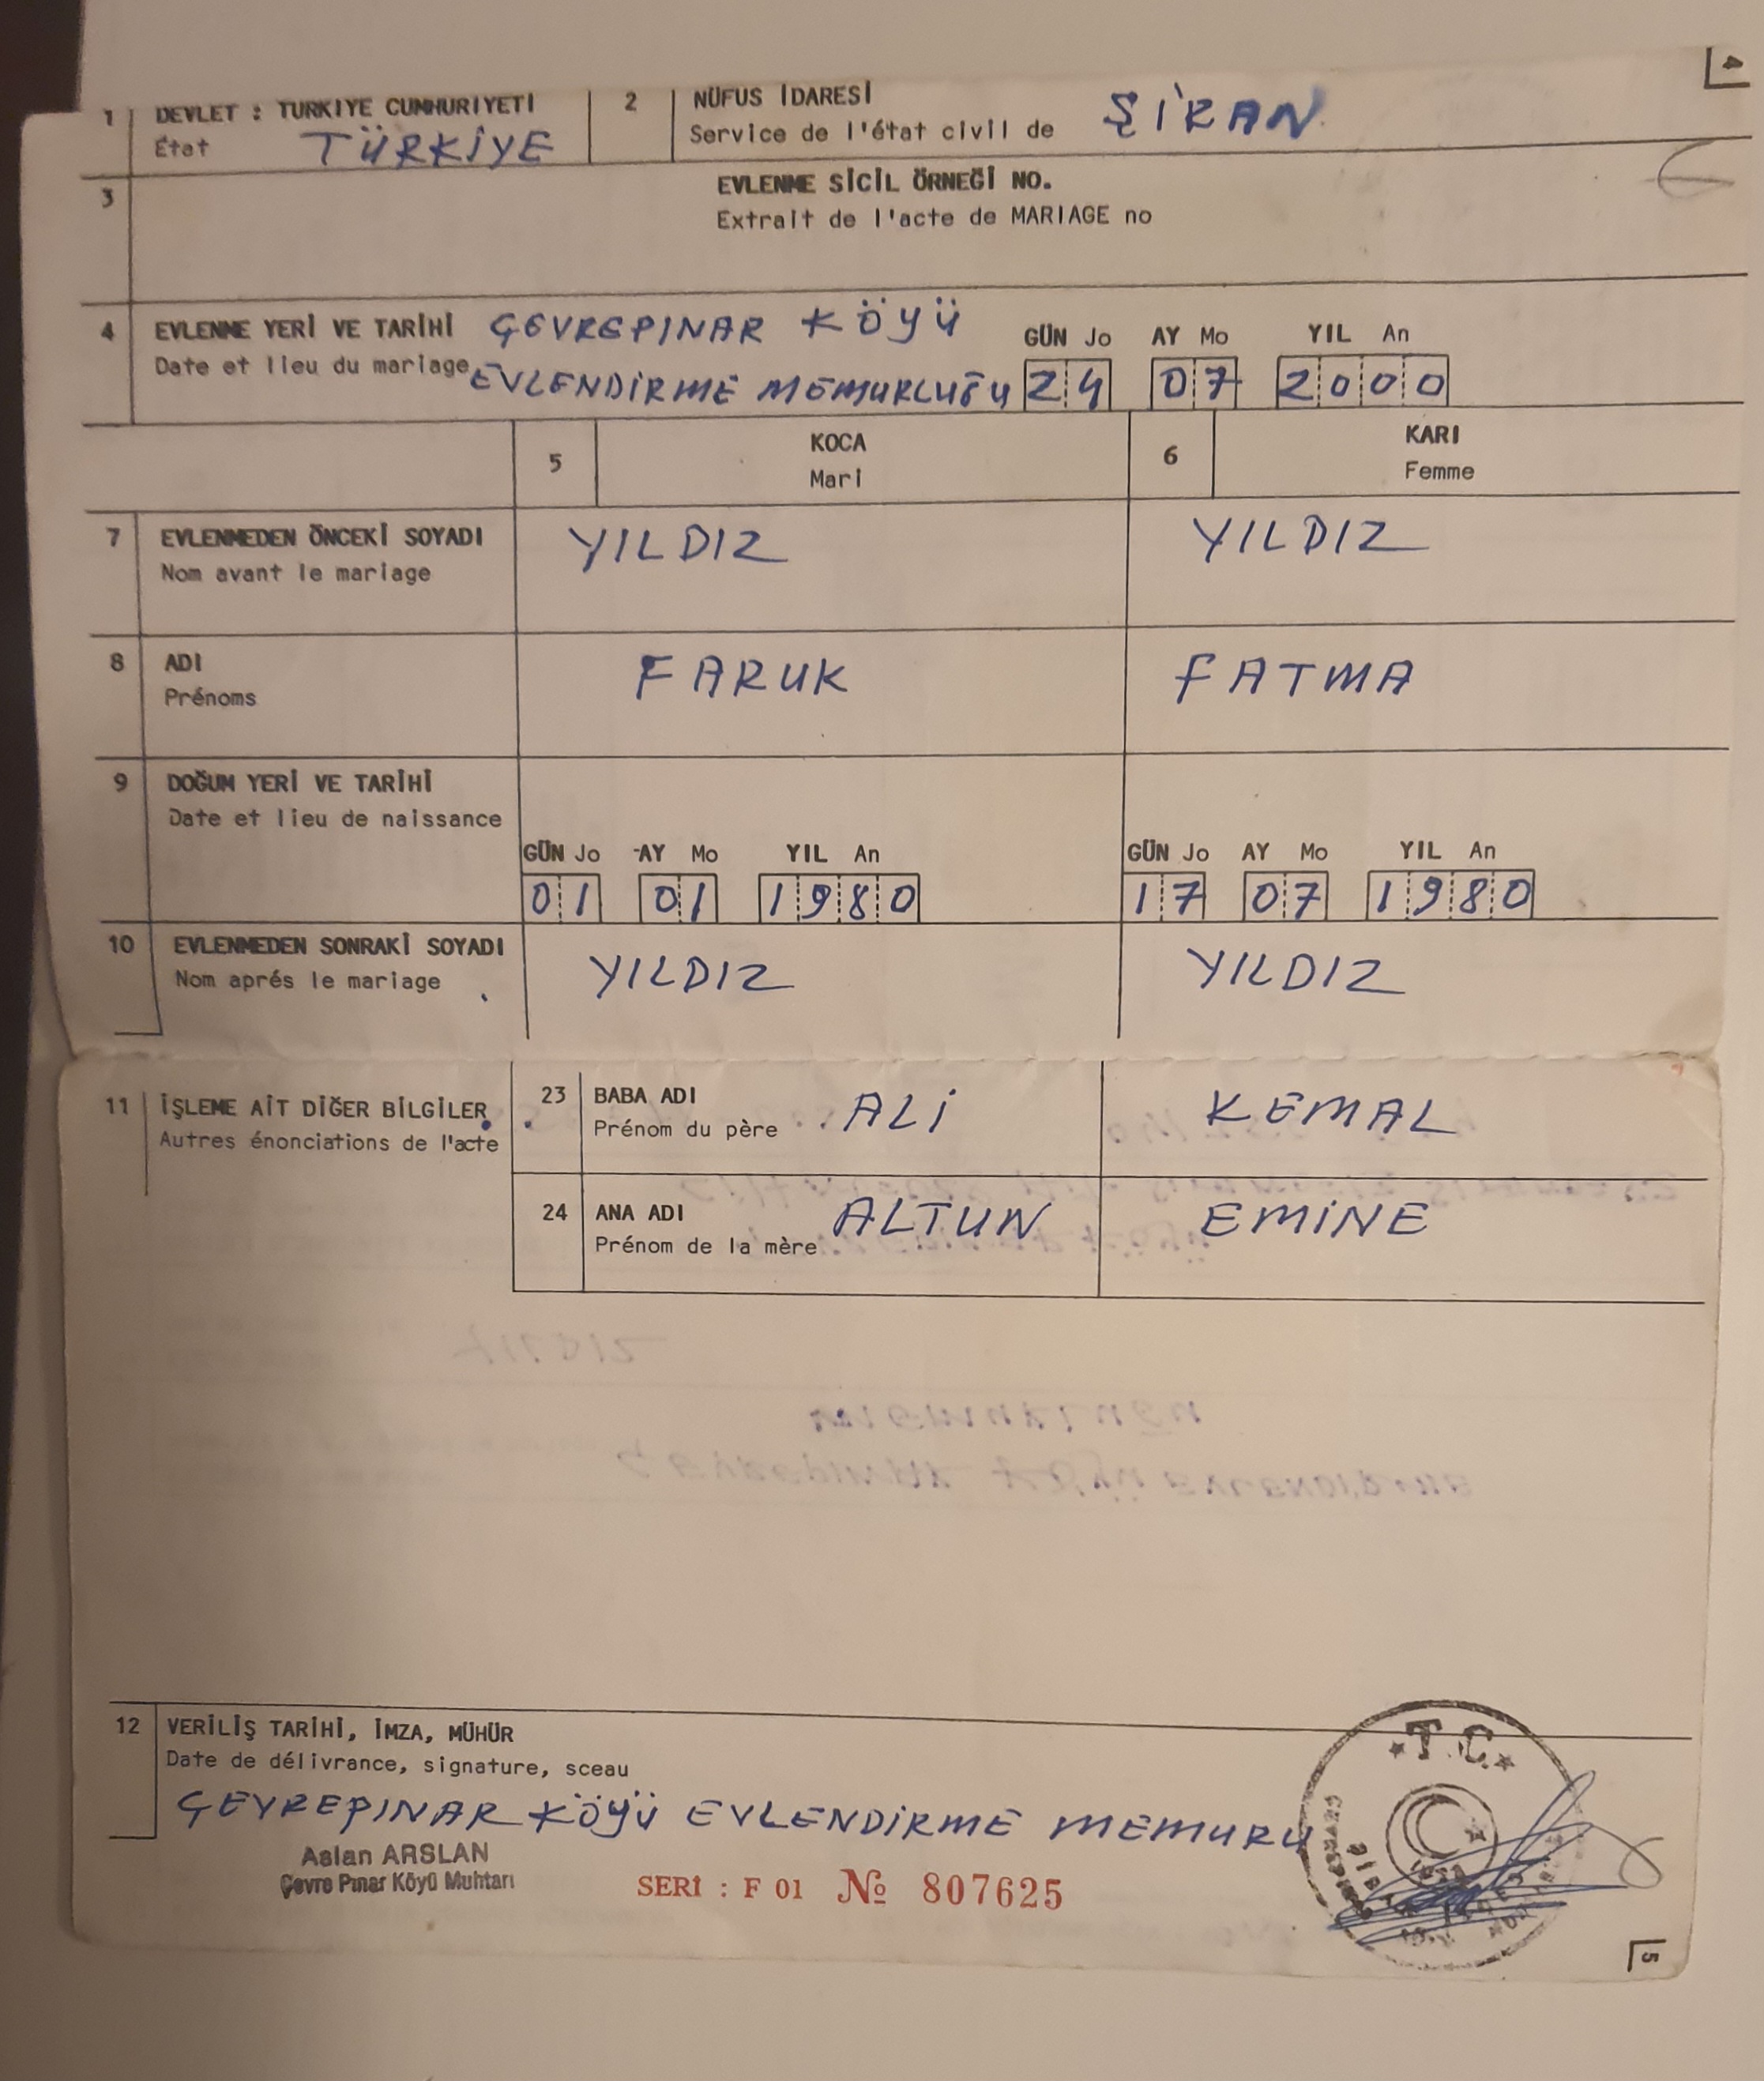 4
1 DEVLET : TÜRKİYE CUMHURİYETİ
État TÜRKİYE
2 NÜFUS İDARESİ
Service de l'état civil de ŞİRAN
3 EVLENME SİCİL ÖRNEĞİ NO.
Extrait de l'acte de MARIAGE no
4 EVLENME YERİ VE TARİHİ ÇEVREPINAR KÖYÜ
Date et lieu du mariage EVLENDİRME MEMURLUĞU
GÜN Jo AY Mo YIL An
24 07 2000
5 KOCA
Mari
6 KARI
Femme
7 EVLENMEDEN ÖNCEKİ SOYADI YILDIZ YILDIZ
Nom avant le mariage
8 ADI FARUK FATMA
Prénoms
9 DOĞUM YERİ VE TARİHİ
Date et lieu de naissance
GÜN Jo AY Mo YIL An GÜN Jo AY Mo YIL An
01 01 1980 17 07 1980
10 EVLENMEDEN SONRAKİ SOYADI YILDIZ YILDIZ
Nom aprés le mariage
11 İŞLEME AİT DİĞER BİLGİLER
Autres énonciations de l'acte
23 BABA ADI ALİ KEMAL
Prénom du père
24 ANA ADI ALTUN EMİNE
Prénom de la mère
12 VERİLİŞ TARİHİ, İMZA, MÜHÜR
Date de délivrance, signature, sceau
ÇEVREPINAR KÖYÜ EVLENDİRME MEMURU
Aslan ARSLAN
Çevre Pınar Köyü Muhtarı
SERİ : F 01 № 807625
T.C.
5